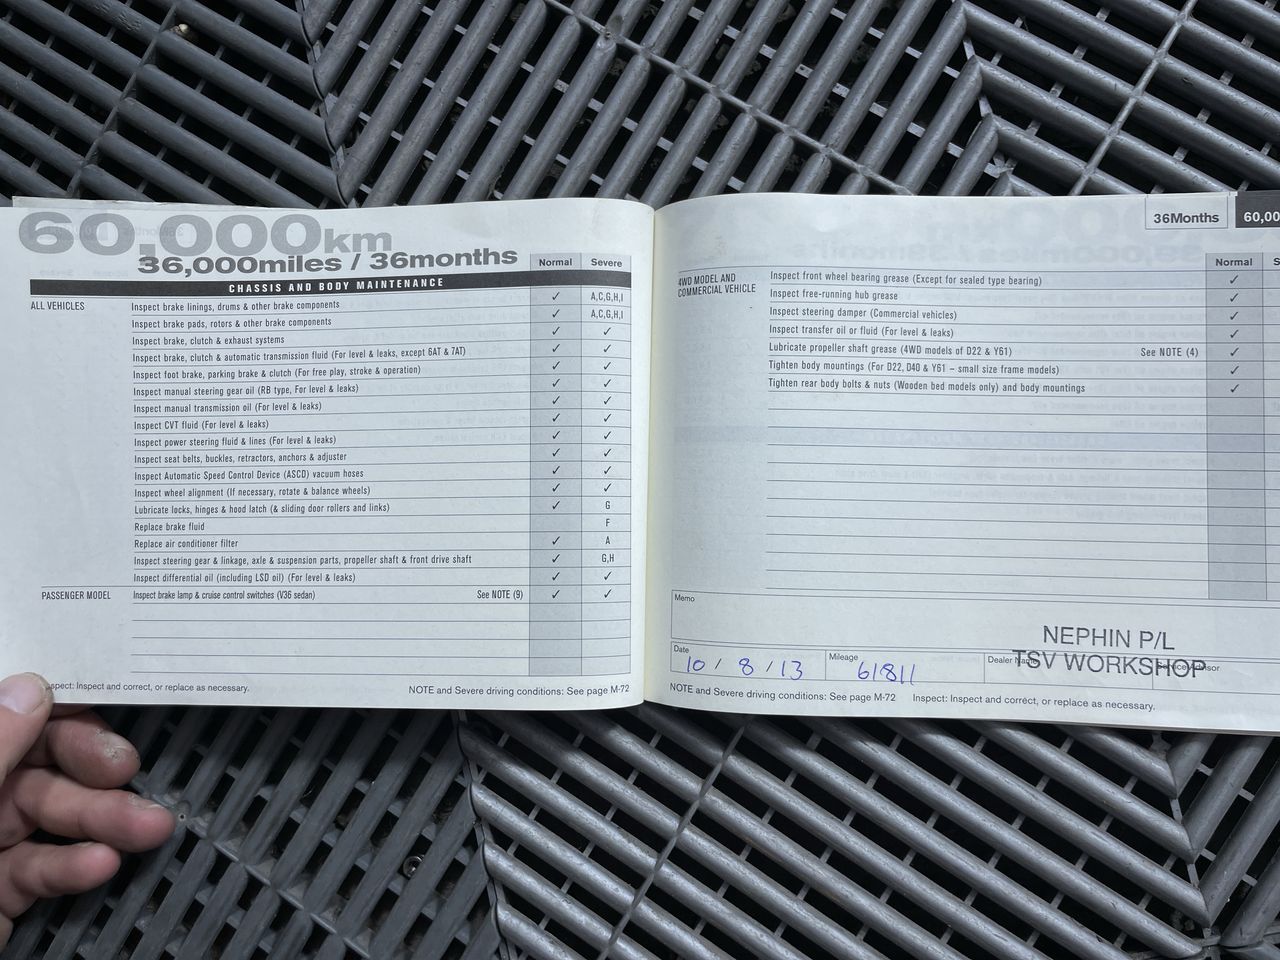 60,000km
36,000miles / 36months
Normal Severe
CHASSIS AND BODY MAINTENANCE
ALL VEHICLES
Inspect brake linings, drums & other brake components ✓ A,C,G,H,I
Inspect brake pads, rotors & other brake components ✓ A,C,G,H,I
Inspect brake, clutch & exhaust systems ✓ ✓
Inspect brake, clutch & automatic transmission fluid (For level & leaks, except 6AT & 7AT) ✓ ✓
Inspect foot brake, parking brake & clutch (For free play, stroke & operation) ✓ ✓
Inspect manual steering gear oil (RB type, For level & leaks) ✓ ✓
Inspect manual transmission oil (For level & leaks) ✓ ✓
Inspect CVT fluid (For level & leaks) ✓ ✓
Inspect power steering fluid & lines (For level & leaks) ✓ ✓
Inspect seat belts, buckles, retractors, anchors & adjuster ✓ ✓
Inspect Automatic Speed Control Device (ASCD) vacuum hoses ✓ ✓
Inspect wheel alignment (If necessary, rotate & balance wheels) ✓ ✓
Lubricate locks, hinges & hood latch (& sliding door rollers and links) ✓ G
Replace brake fluid F
Replace air conditioner filter ✓ A
Inspect steering gear & linkage, axle & suspension parts, propeller shaft & front drive shaft ✓ G,H
Inspect differential oil (including LSD oil) (For level & leaks) ✓ ✓
PASSENGER MODEL
Inspect brake lamp & cruise control switches (V36 sedan) See NOTE (9) ✓ ✓
Inspect: Inspect and correct, or replace as necessary.
NOTE and Severe driving conditions: See page M-72
36Months
Normal
4WD MODEL AND
COMMERCIAL VEHICLE
Inspect front wheel bearing grease (Except for sealed type bearing) ✓
Inspect free-running hub grease ✓
Inspect steering damper (Commercial vehicles) ✓
Inspect transfer oil or fluid (For level & leaks) ✓
Lubricate propeller shaft grease (4WD models of D22 & Y61) See NOTE (4) ✓
Tighten body mountings (For D22, D40 & Y61 – small size frame models) ✓
Tighten rear body bolts & nuts (Wooden bed models only) and body mountings ✓
Memo
NEPHIN P/L
TSV WORKSHOP
Date 10 / 8 / 13
Mileage 61811
Dealer Name
Service Advisor
NOTE and Severe driving conditions: See page M-72 Inspect: Inspect and correct, or replace as necessary.